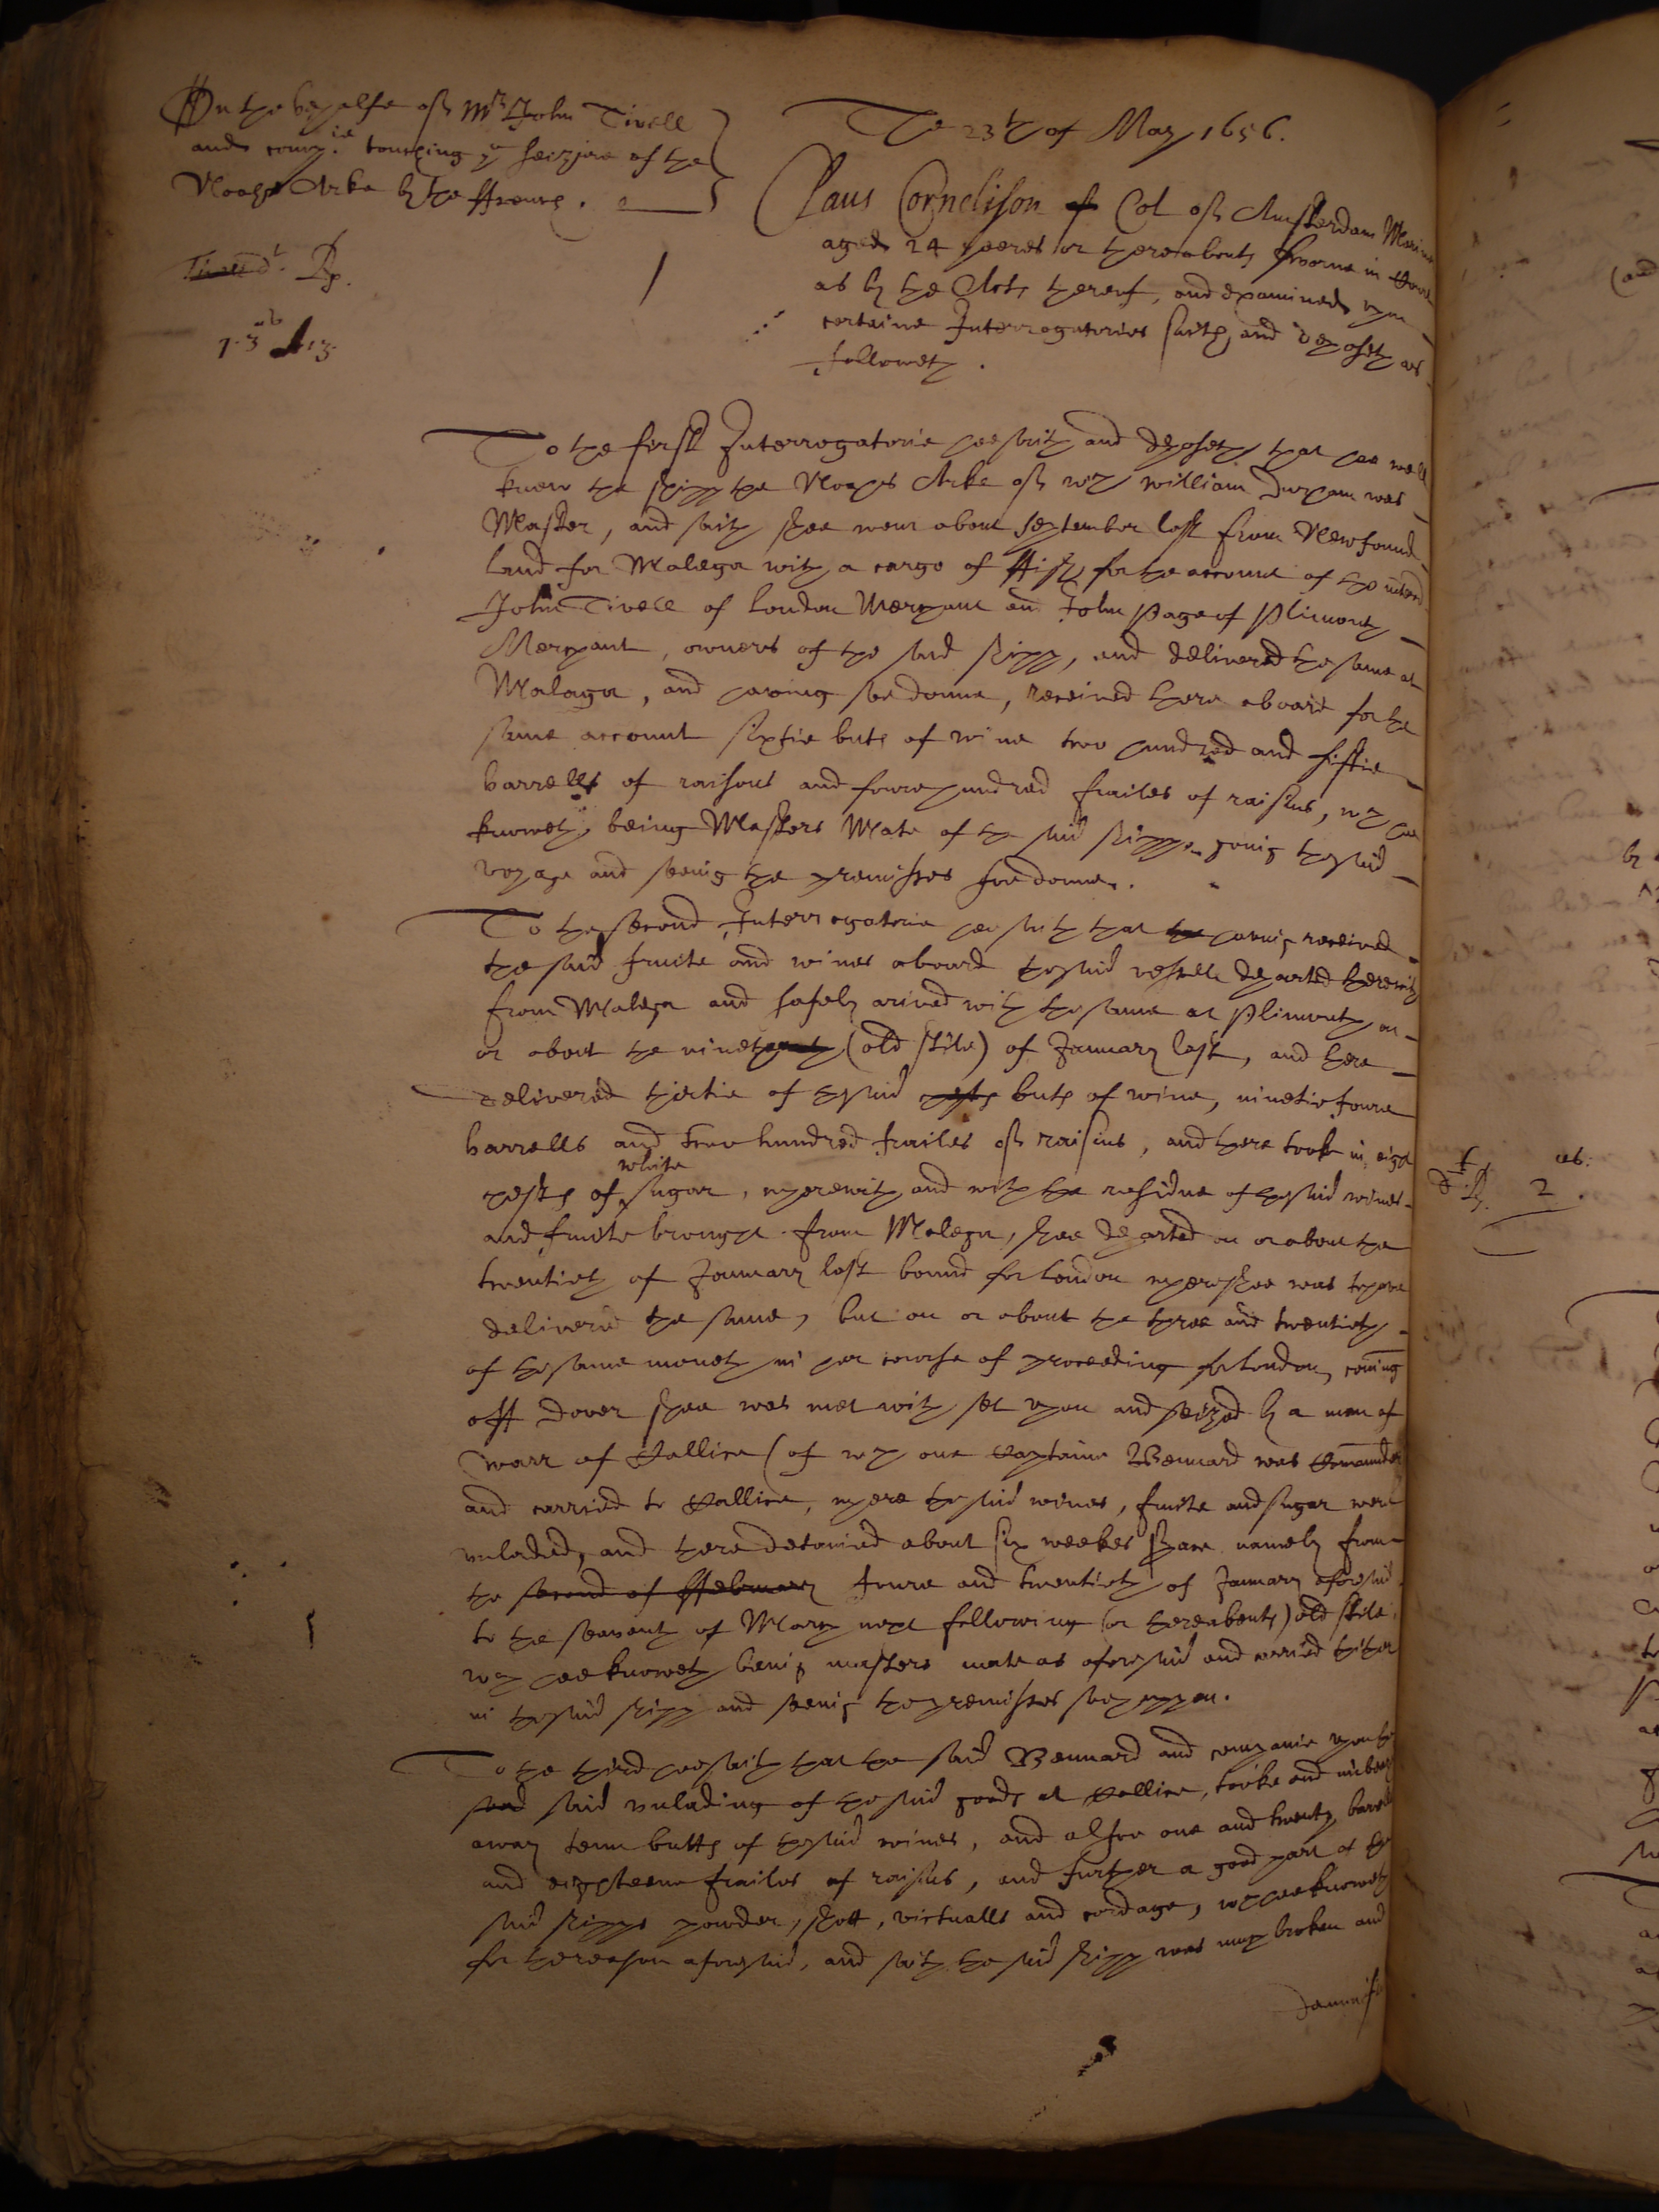 On the behalfe of Mr John Tivell
and comp.ie touching ye seizure of the
Noahs Arke by the ffrench.
dt. Rp.
The 23th of May 1656.
Claus Cornelison of Col of Amsterdam
aged 24 yeeres or thereabouts sworne in
as by the Acts thereof, and examined upon
certaine Interrogatories saith and deposeth as
followeth.
To the first Interrogatorie hee saith and deposeth that hee well
knew the shipp the Noahes Arke of wch William Durham was
Master, and saith shee went about September last from Newfound
land for Malega with a cargo of ffish for the account of the
John Tivell of London Merchant and John Page of Plimouth
Merchant, owners of the said shipp, and delivered the same at
Malaga, and having soe donne, received there aboard for the
same account sixtie buts of wine two hundred and fiftie
barrells of raisons and foure hundred frailes of raisins, wch hee
knoweth being Masters Mate of the said shippe going the said
voyage and seeing the premisses soe donne.
To the second Interrogatorie hee saith that the having received
the said fruite and wines aboard the said vessell departed therewith
from Malega and safely arived with the same at Plimouth on
or about the (old stile) of January last, and there
delivered thirtie of the said buts of wine, ninetie foure
barrells and two hundred frailes of raisins, and there tooke in eight
white
chests of sugar, wherewith and with the residue of the said wines
and fruite brought from Malega, shee departed on or about the
twentieth of January last bound for London where shee was to have
delivered the same, but on or about the three and twentieth
of the same moneth in her course of proceeding for London, coming
off Dover shee was met with, set upon and seized by a man of
warr of Callice (of wch one Captaine Bennard was Comander
and carried to Callice, where the said wines, fruite and sugar were
unladed, and there detained about six weekes space namely from
the second of ffebruary foure and twentieth of January aforesaid
to the seaventh of March next following (or thereabouts) old stile,
wch hee knoweth being masters mate as aforesaid and carried thither
in the said shipp and seeing the premisses soe happen.
To the third hee saith that the said Bennard and companie upon the
said unlading of the said goods at Callice, tooke and
away tenn butts of the said wines, and alsoe one and twenty barrells
and eighteene frailes of raisins, and further a good part of the
said shipps powder, shott, victualls and cordage, wch hee knoweth
for the reason aforesaid, and saith the said shipp was much broken and